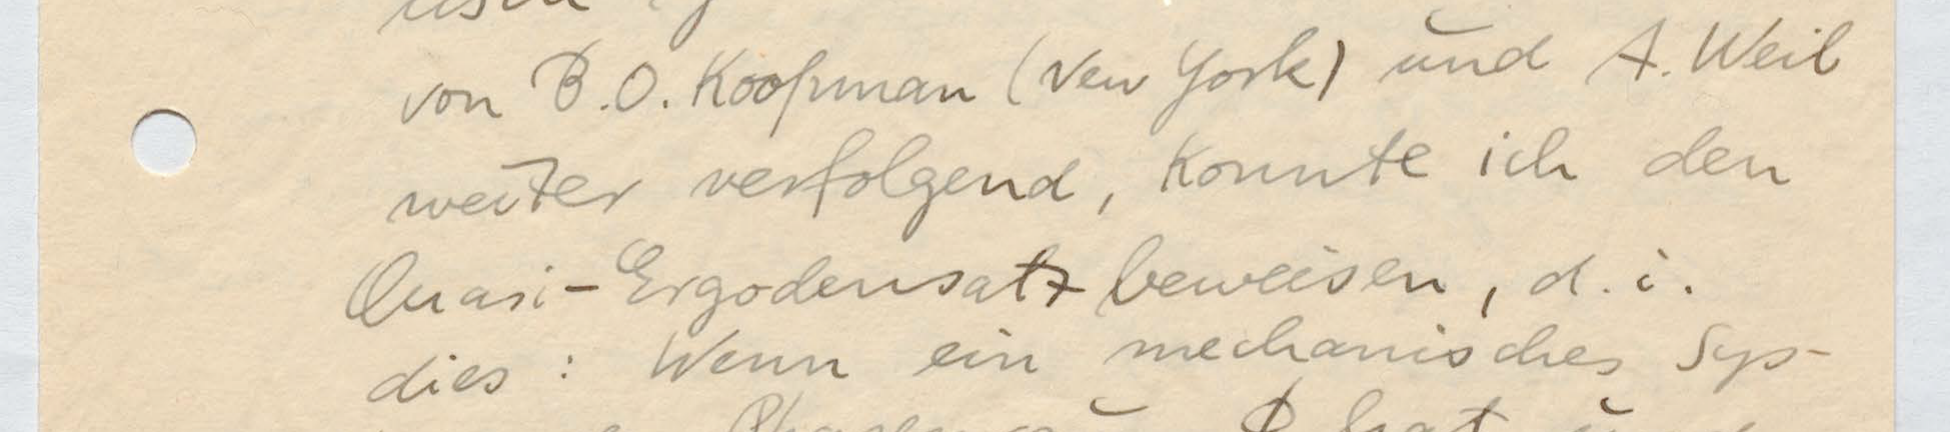 von B.O. Koopman (New York) und A. Weil
weiter verfolgend, konnte ich den
Quasi-Ergodensatz beweisen, d. i.
dies: Wenn ein mechanisches Sys-
hat